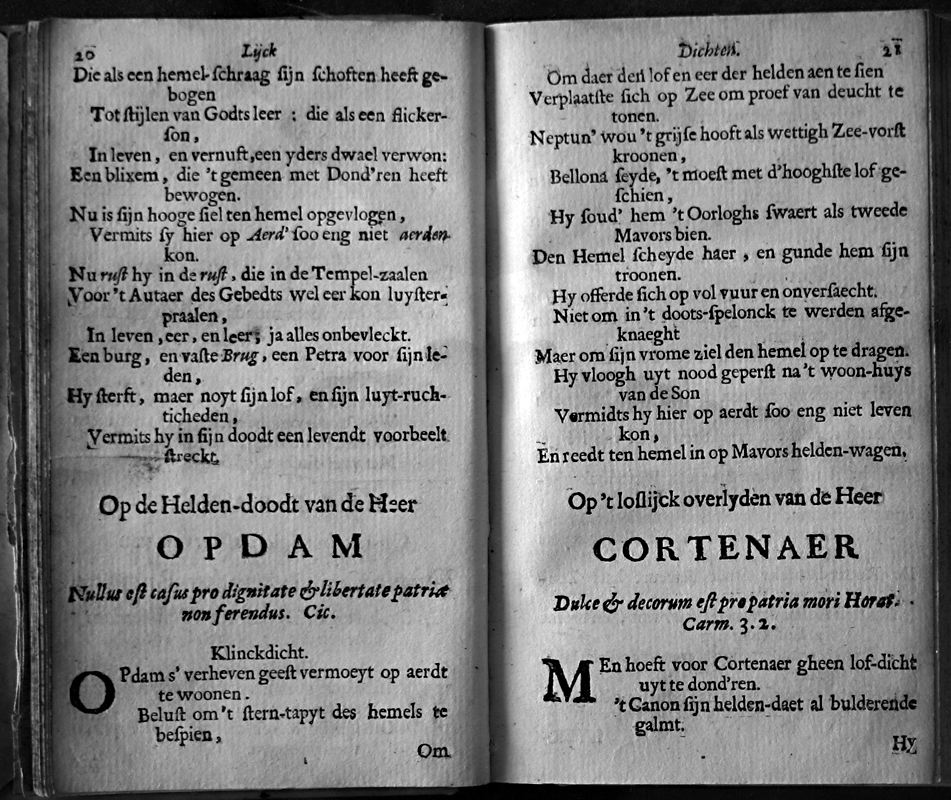 20 Lijck
Die als een hemel-schraag sijn schoften heeft ge-
bogen
Tot stijlen van Godts leer : die als een flicker-
son,
In leven, en vernuft, een yders dwael verwon:
Een blixem, die 't gemeen met Dond'ren heeft
bewogen.
Nu is sijn hooge siel ten hemel opgevlogen,
Vermits sy hier op Aerd' soo eng niet aerden
kon.
Nu rust hy in de rust, die in de Tempel-zaalen
Voor 't Autaer des Gebedts wel eer kon luyster-
praalen,
In leven, eer, en leer; ja alles onbevleckt.
Een burg, en vaste Brug, een Petra voor sijn le-
den,
Hy sterft, maer noyt sijn lof, en sijn luyt-ruch-
ticheden,
Vermits hy in sijn doodt een levendt voorbeelt
streckt.
Op de Helden-doodt van de Heer
OPDAM
Nullus est casus pro dignitate & libertate patriæ
non ferendus. Cic.
Klinckdicht.
OPdam s' verheven geest vermoeyt op aerdt
te woonen.
Belust om 't stern-tapyt des hemels te
bespien,
Om
Dichten. 21
Om daer den lof en eer der helden aen te sien
Verplaatste sich op Zee om proef van deucht te
tonen.
Neptun' wou 't grijse hooft als wettigh Zee-vorst
kroonen,
Bellona seyde, 't moest met d'hooghste lof ge-
schien,
Hy soud' hem 't Oorloghs swaert als tweede
Mavors bien.
Den Hemel scheyde haer, en gunde hem sijn
troonen.
Hy offerde sich op vol vuur en onversaecht.
Niet om in 't doots-spelonck te werden afge-
knaeght
Maer om sijn vrome ziel den hemel op te dragen.
Hy vloogh uyt nood geperst na 't woon-huys
van de Son
Vermidts hy hier op aerdt soo eng niet leven
kon,
En reedt ten hemel in op Mavors helden-wagen.
Op 't loflijck overlyden van de Heer
CORTENAER
Dulce & decorum est pro patria mori Horat.
Carm. 3. 2.
MEn hoeft voor Cortenaer gheen lof-dicht
uyt te dond'ren.
't Canon sijn helden-daet al bulderende
galmt.
Hy